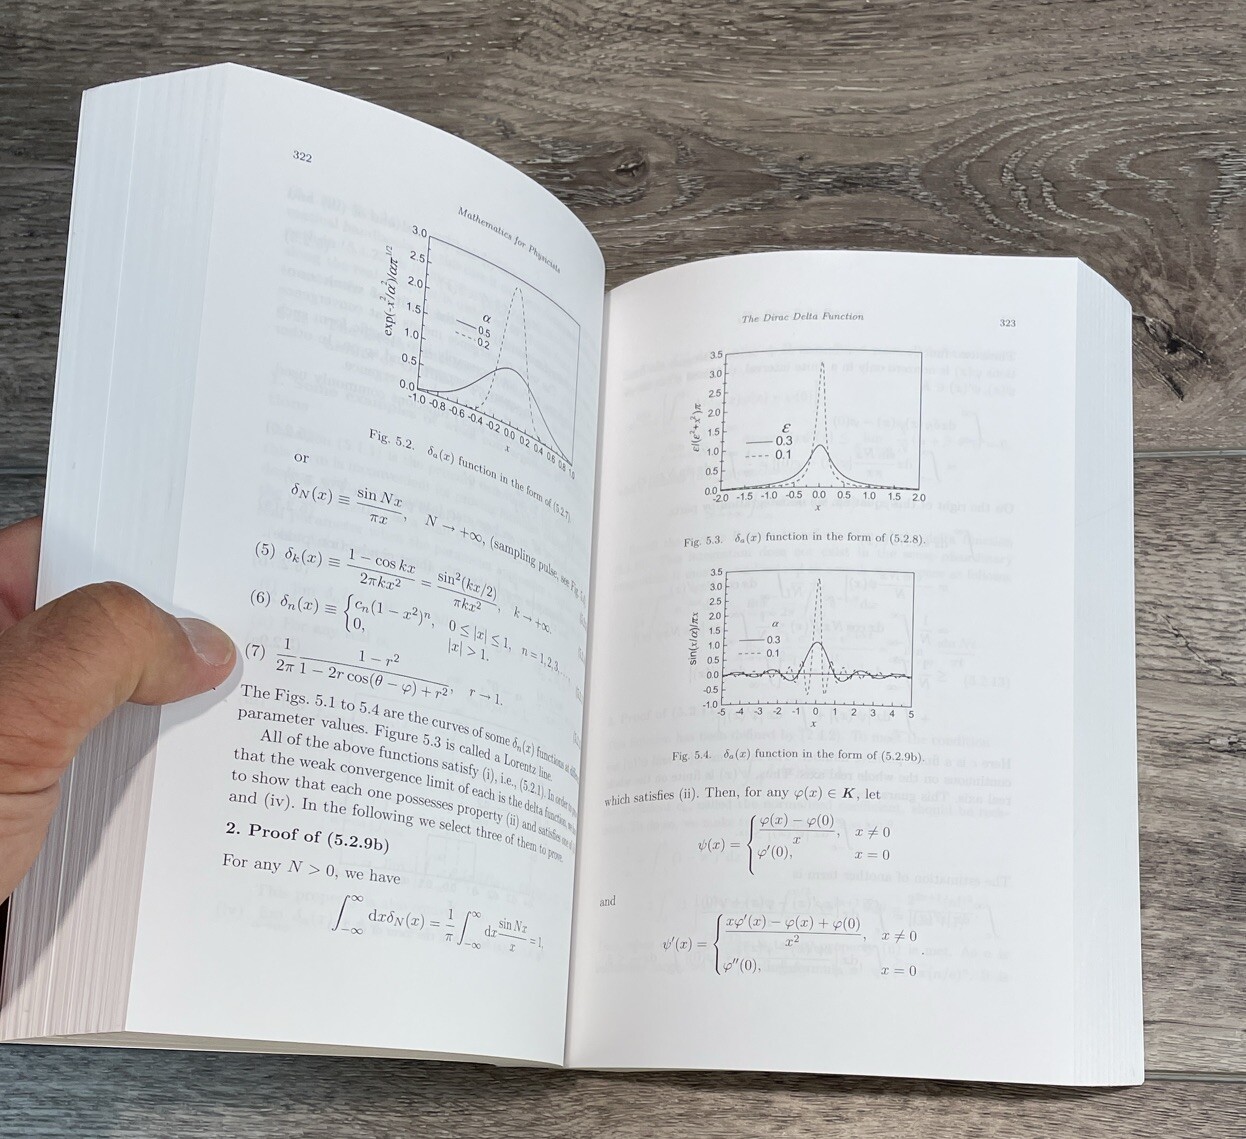 322
Mathematics for Physicists
exp(-x²/α²)/απ^1/2
3.0
2.5
2.0
1.5
1.0
0.5
0.0
α
0.5
0.2
-1.0 -0.8 -0.6 -0.4 -0.2 0.0 0.2 0.4 0.6 0.8 1.0
x
Fig. 5.2. δα(x) function in the form of (5.2.7).
or
δN(x) ≡ sin Nx / πx, N → +∞, (sampling pulse, see Fig.
(5) δk(x) ≡ 1 − cos kx / 2πkx² = sin²(kx/2) / πkx², k → +∞.
(6) δn(x) ≡ { cn(1 − x²)ⁿ, 0 ≤ |x| ≤ 1, n = 1, 2, 3, . . . ,
0, |x| > 1.
(7) 1/2π 1 − r² / 1 − 2r cos(θ − φ) + r², r → 1.
The Figs. 5.1 to 5.4 are the curves of some δn(x) functions at
parameter values. Figure 5.3 is called a Lorentz line.
All of the above functions satisfy (i), i.e., (5.2.1). In order to
that the weak convergence limit of each is the delta function,
to show that each one possesses property (ii) and satisfies
and (iv). In the following we select three of them to prove.
2. Proof of (5.2.9b)
For any N > 0, we have
∫_−∞^∞ dxδN(x) = 1/π ∫_−∞^∞ dx sin Nx / x = 1,
The Dirac Delta Function
323
ε/(ε²+x²)π
3.5
3.0
2.5
2.0
1.5
1.0
0.5
0.0
ε
0.3
0.1
-2.0 -1.5 -1.0 -0.5 0.0 0.5 1.0 1.5 2.0
x
Fig. 5.3. δα(x) function in the form of (5.2.8).
sin(x/α)/πx
3.5
3.0
2.5
2.0
1.5
1.0
0.5
0.0
-0.5
-1.0
α
0.3
0.1
-5 -4 -3 -2 -1 0 1 2 3 4 5
x
Fig. 5.4. δα(x) function in the form of (5.2.9b).
which satisfies (ii). Then, for any φ(x) ∈ K, let
ψ(x) = { φ(x) − φ(0) / x, x ≠ 0
φ′(0), x = 0
and
ψ′(x) = { xφ′(x) − φ(x) + φ(0) / x², x ≠ 0
φ″(0), x = 0
.